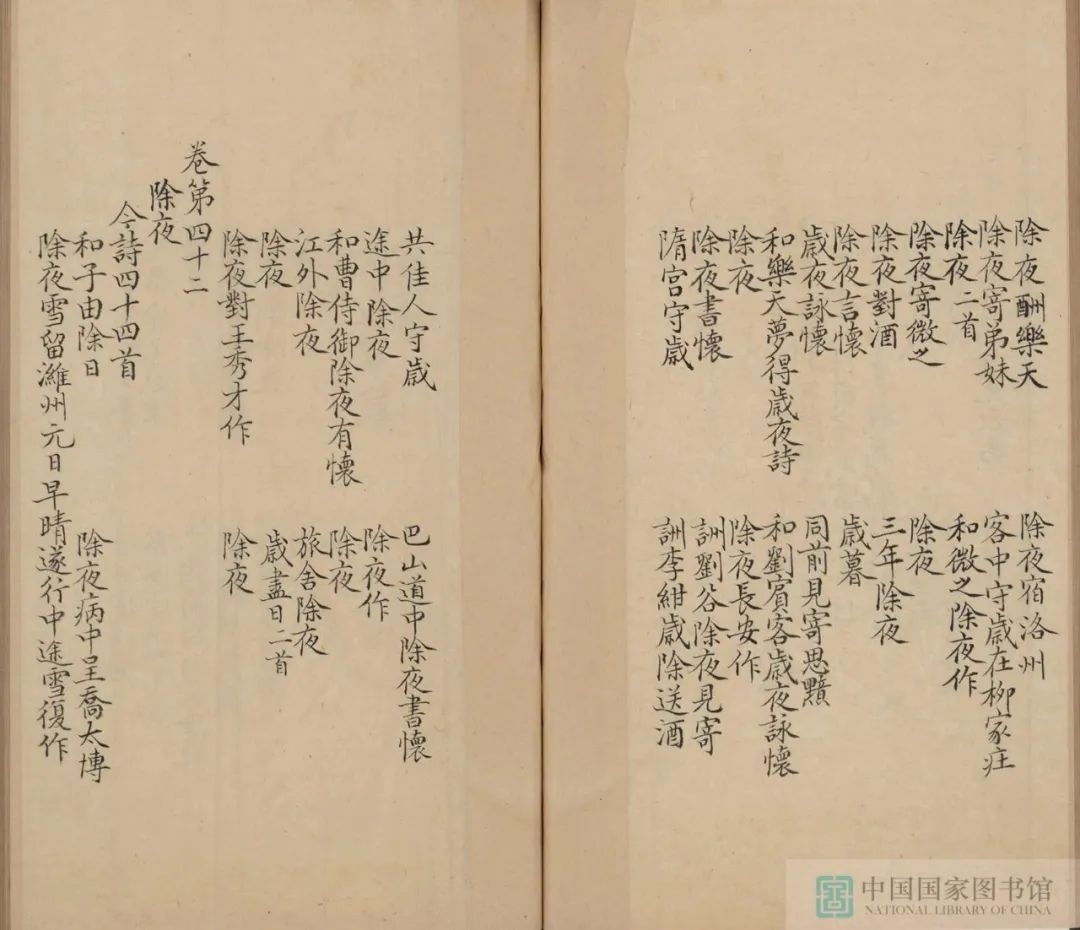 除夜酬樂天
除夜宿洛州
除夜寄弟妹
客中守歳在柳家庄
除夜二首
和微之除夜作
除夜寄微之
除夜
除夜對酒
三年除夜
除夜言懷
歳暮
歳夜詠懷
同前見寄思黯
和樂天夢得歳夜詩
和劉賓客歳夜詠懷
除夜
除夜長安作
除夜書懷
詶劉谷除夜見寄
隋宫守歳
詶李紺歳除送酒
共佳人守歳
巴山道中除夜書懷
途中除夜
除夜作
和曹侍御除夜有懷
除夜
江外除夜
旅舍除夜
除夜
歳盡日二首
除夜對王秀才作
除夜
卷第四十二
除夜
今詩四十四首
和子由除日
除夜病中呈喬太博
除夜雪留濰州元日早晴遂行中途雪復作
中国国家图书馆
NATIONAL LIBRARY OF CHINA